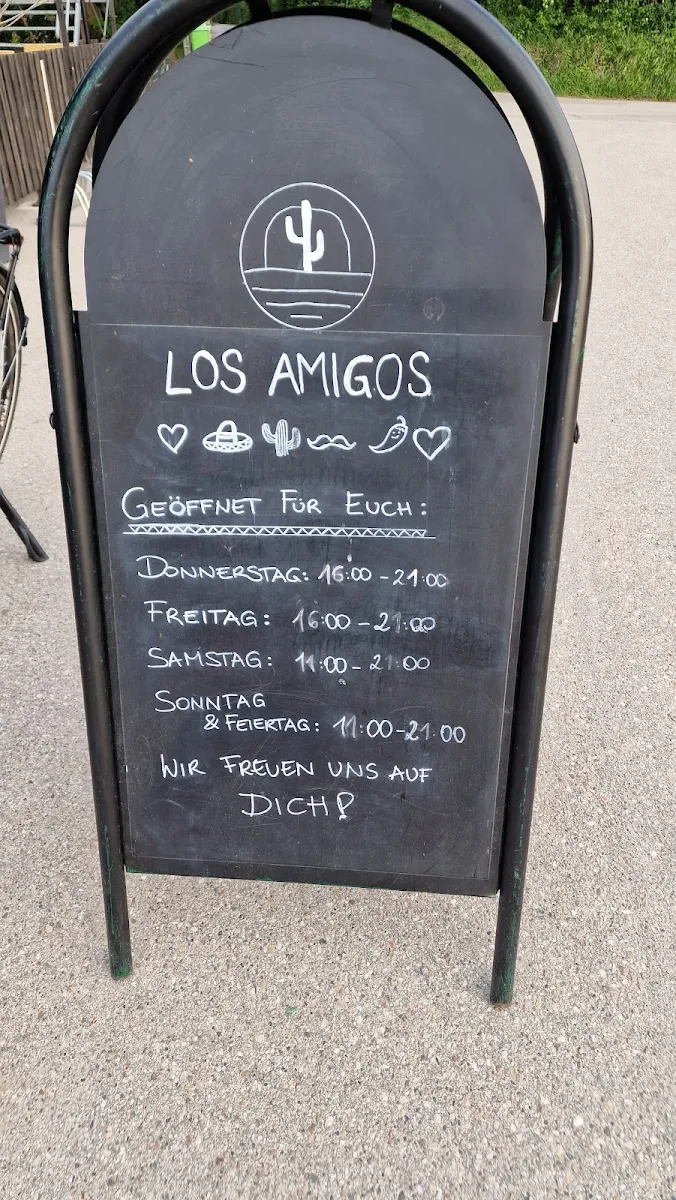 LOS AMIGOS
GEÖFFNET FÜR EUCH:
DONNERSTAG: 16:00 - 21:00
FREITAG: 16:00 - 21:00
SAMSTAG: 11:00 - 21:00
SONNTAG
& FEIERTAG: 11:00 - 21:00
WIR FREUEN UNS AUF
DICH!